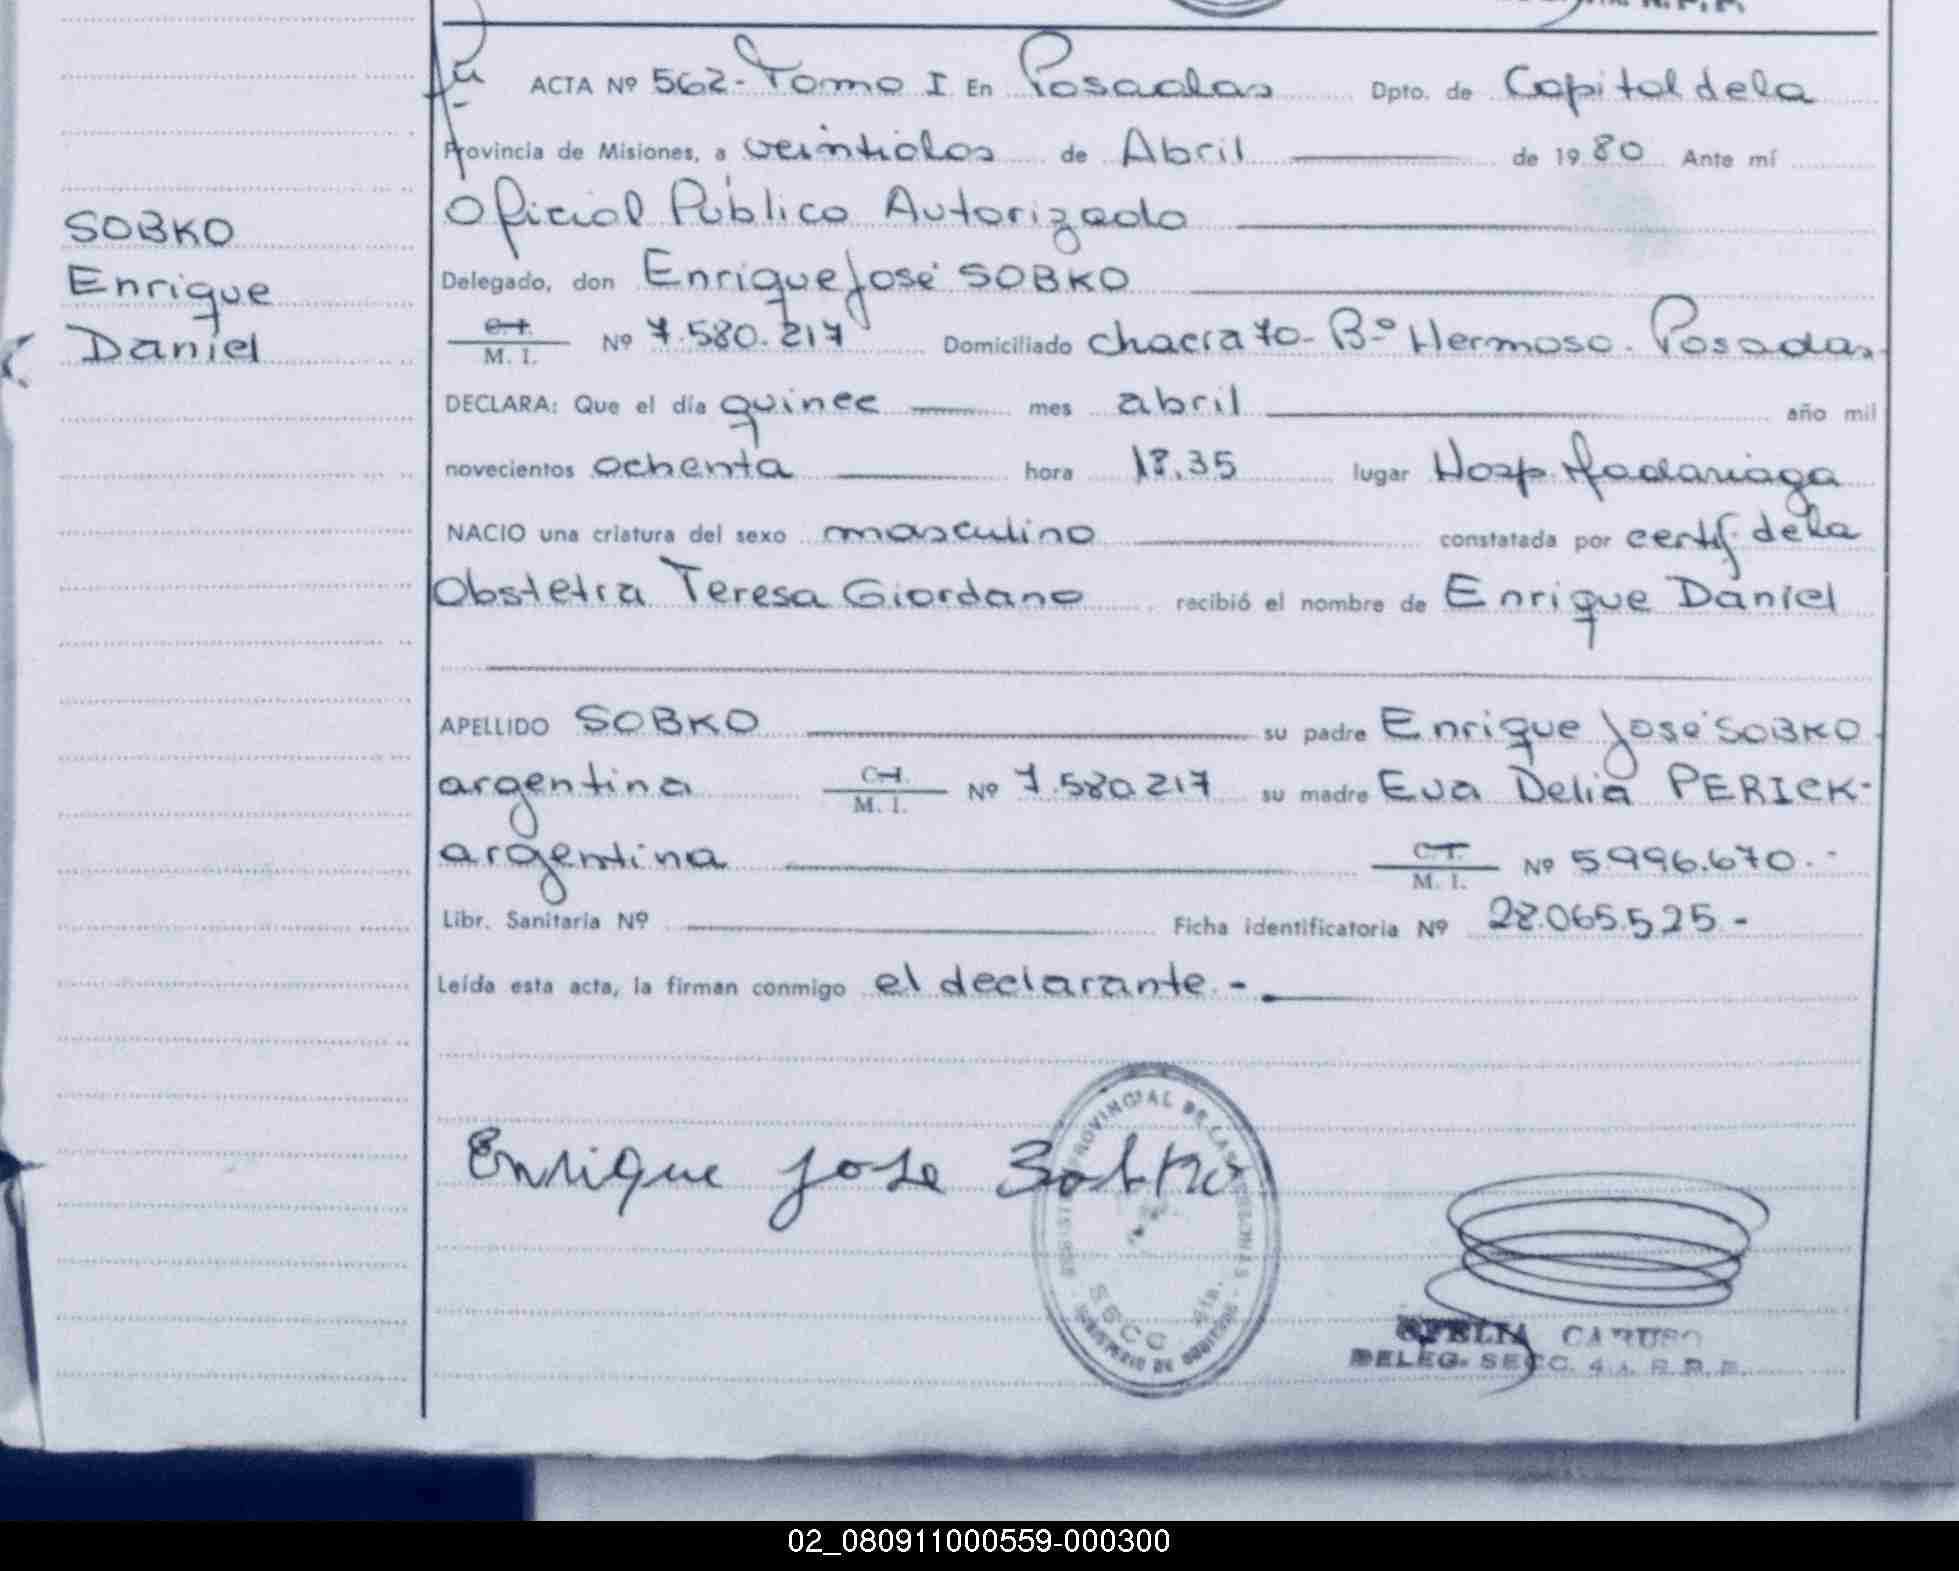 ACTA Nº 562-Tomo I En Posadas Dpto. de Capital de la
Provincia de Misiones, a veintidos de Abril de 1980 Ante mí
Oficial Público Autorizado
SOBKO
Enrique
Daniel
Delegado, don Enrique José SOBKO
C.I.
M. I. Nº 7.580.217 Domiciliado chacra 70- Bº Hermoso. Posadas
DECLARA: Que el día quince mes abril año mil
novecientos ochenta hora 18.35 lugar Hosp. Madariaga
NACIO una criatura del sexo masculino constatada por certif. de la
Obstetra Teresa Giordano recibió el nombre de Enrique Daniel
APELLIDO SOBKO su padre Enrique José SOBKO
argentina C.I. M. I. Nº 7.580.217 su madre Eva Delia PERICK-
argentina C.I. M. I. Nº 5.996.670.-
Libr. Sanitaria Nº Ficha identificatoria Nº 28.065.525-
Leída esta acta, la firman conmigo el declarante.-
Enrique Jose Sobko
PROVINCIAL DE LAS PERSONAS
SECC. 4ta.
MINISTERIO DE GOBIERNO
OFELIA CARUSO
DELEG. SECC. 4a. R.P.P.
02_080911000559-000300